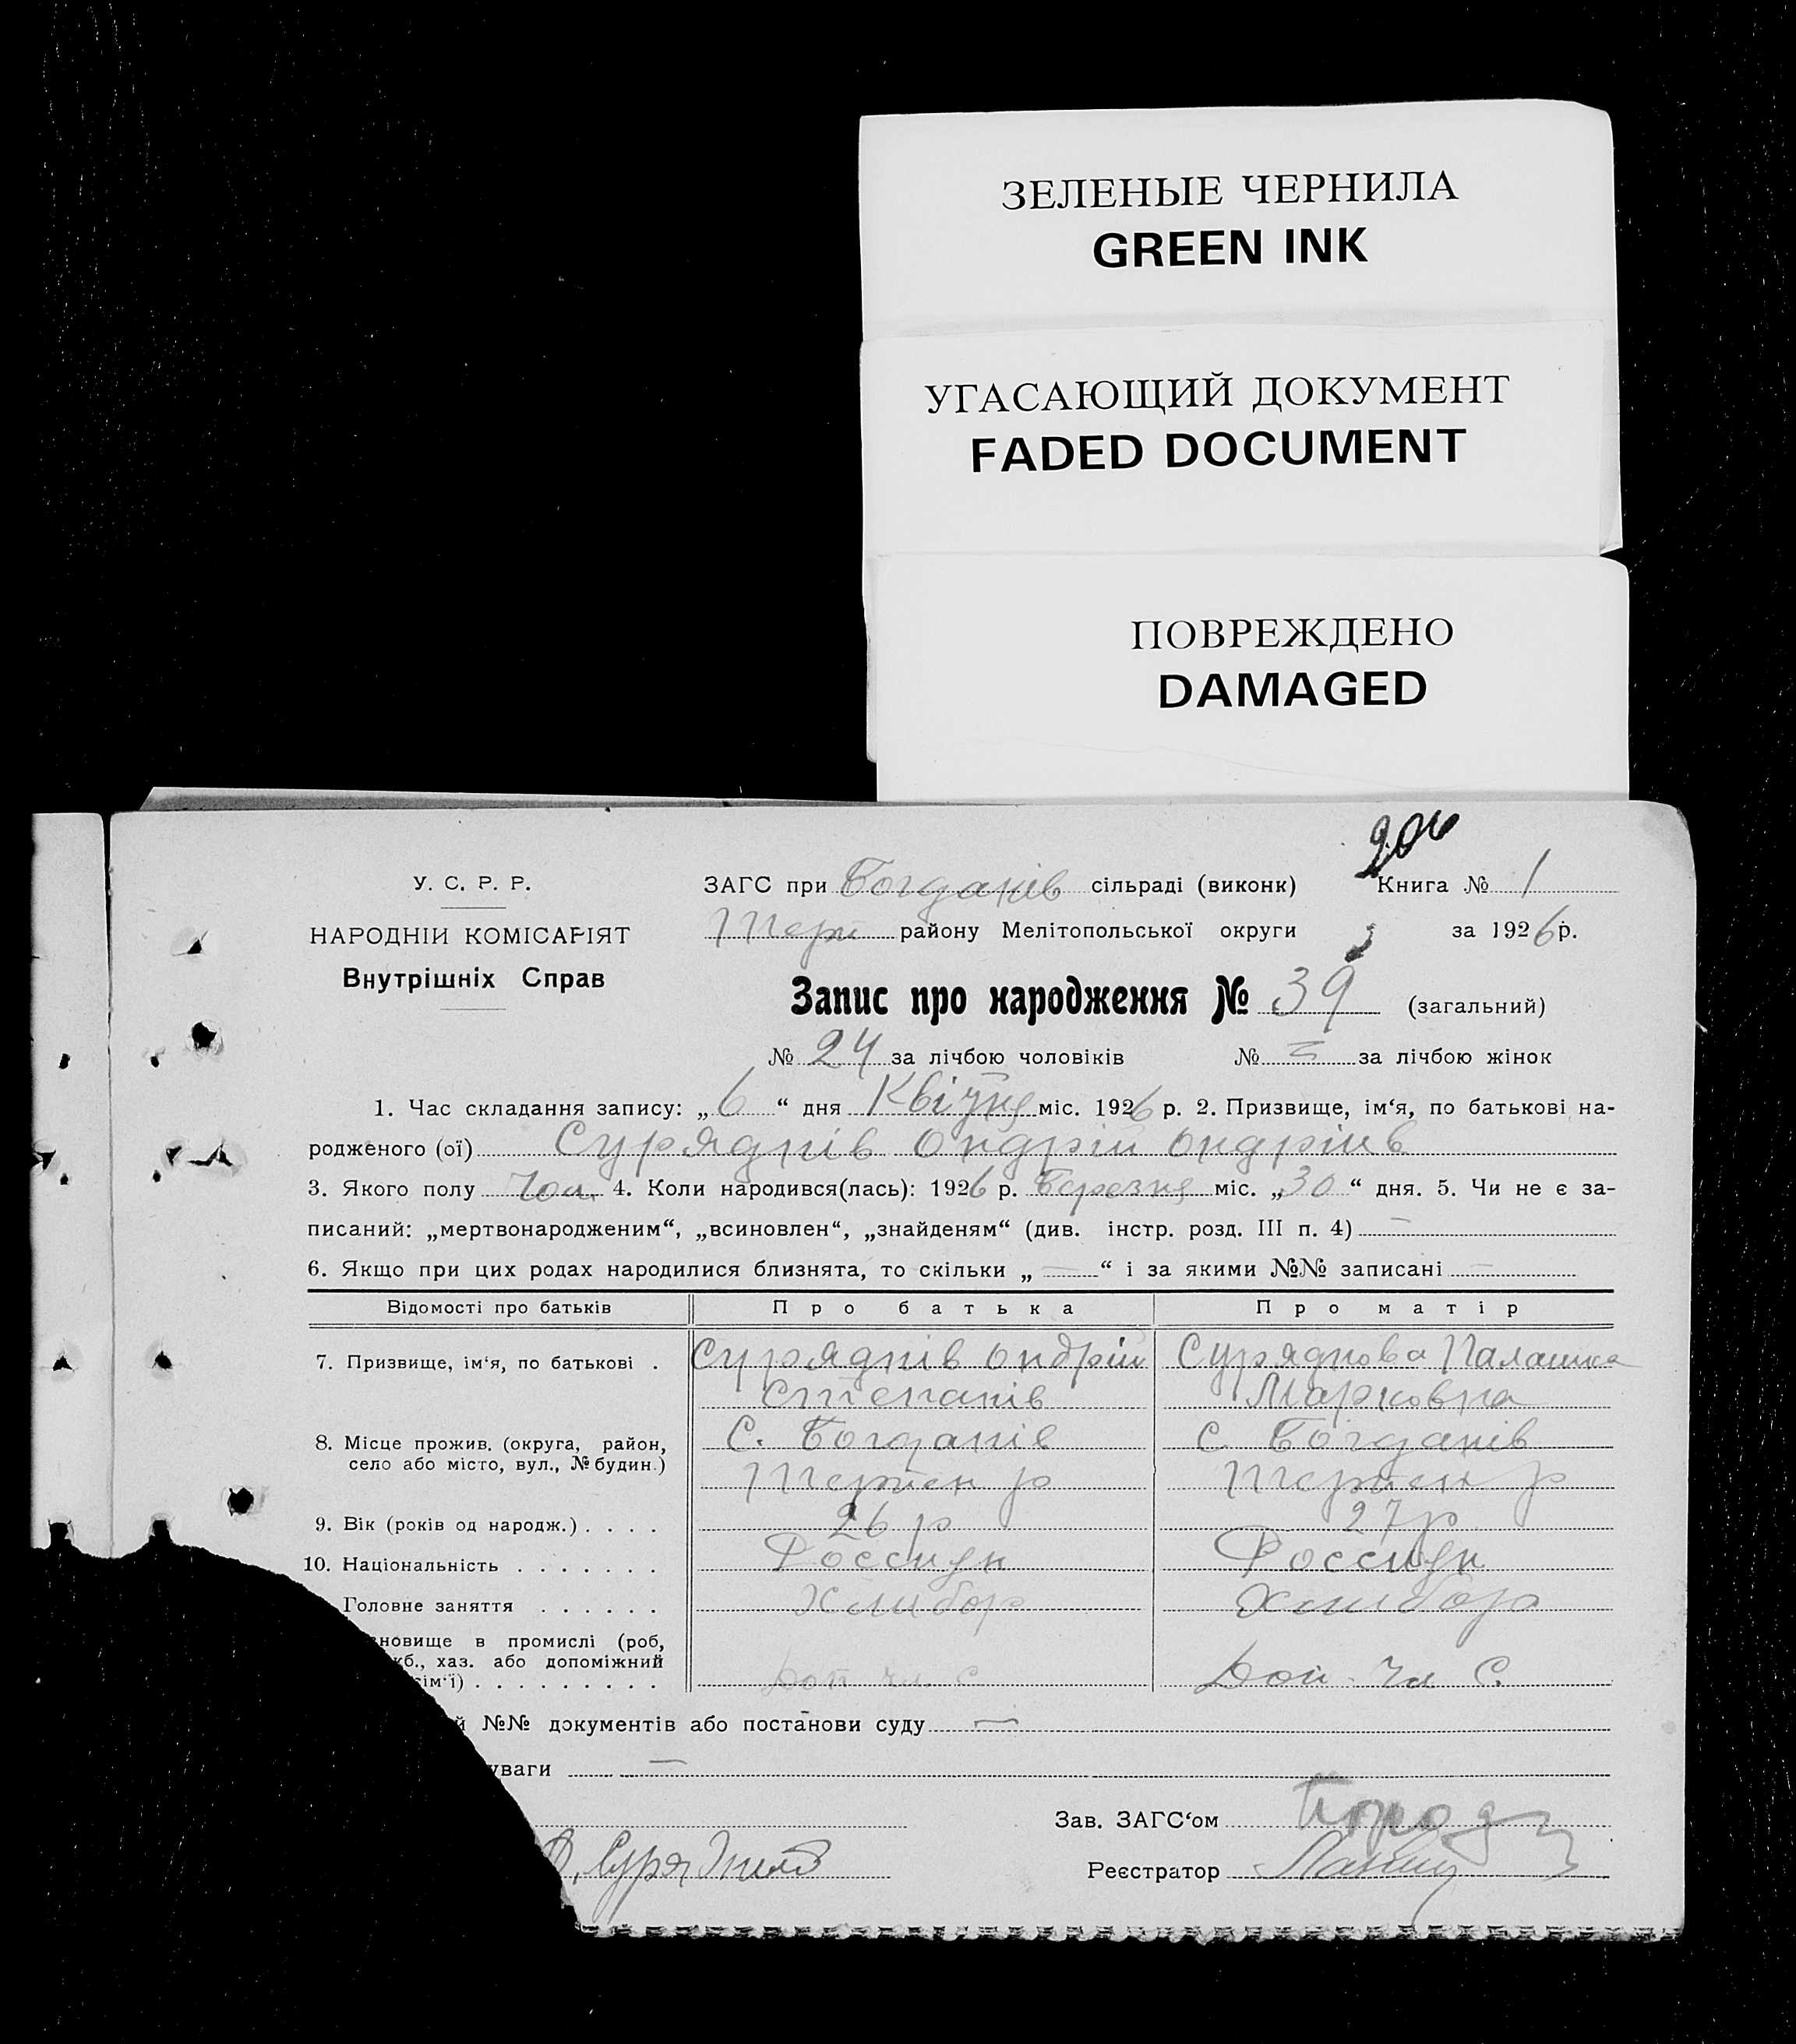 ЗЕЛЕНЫЕ ЧЕРНИЛА
GREEN INK
УГАСАЮЩИЙ ДОКУМЕНТ
FADED DOCUMENT
ПОВРЕЖДЕНО
DAMAGED
206
У. С. Р. Р.
НАРОДНІЙ КОМІСАРІЯТ
Внутрішніх Справ
ЗАГС при Богданів сільраді (виконк) Книга № 1
Терп району Мелітопольської округи за 1926 р.
Запис про народження № 39 (загальний)
№ 24 за лічбою чоловіків № за лічбою жінок
1. Час складання запису: „6“ дня Квітня міс. 1926 р. 2. Призвище, ім‘я, по батькові на-
родженого (ої) Суряднів Ондрій Ондріів
3. Якого полу Чол. 4. Коли народився(лась): 1926 р. Березня міс. „30“ дня. 5. Чи не є за-
писаний: „мертвонародженим“, „всиновлен“, „знайденям“ (див. інстр. розд. III п. 4) —
6. Якщо при цих родах народилися близнята, то скільки „—“ і за якими №№ записані —
Відомості про батьків Про батька Про матір
7. Призвище, ім‘я, по батькові . Суряднів Ондрій Сурядпова Палашка
Степанів Марковна
8. Місце прожив. (округа, район, С. Богданів С. Богданів
село або місто, вул., № будин.) Терпен р Терпен р
9. Вік (років од народж.) . . . . 26 р 27 р
10. Національність . . . . . . . Россиян Россиян
Головне заняття . . . . . . Хлибор Хлибор
новище в промислі (роб,
кб., хаз. або допоміжний
сім‘ї) . . . . . . . . . Доп. чл. С. Доп. Чл С.
й №№ документів або постанови суду —
уваги —
Зав. ЗАГС‘ом
Реєстратор